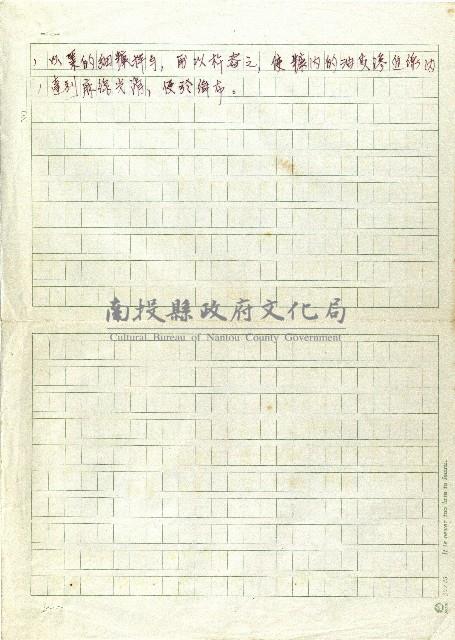 ，以粟的細糠拌勻，而以杵舂之，使糠內的油質滲進線內
，達到麻線光滑，便於織布。
南投縣政府文化局
Cultural Bureau of Nantou County Government
It is never too late to learn.